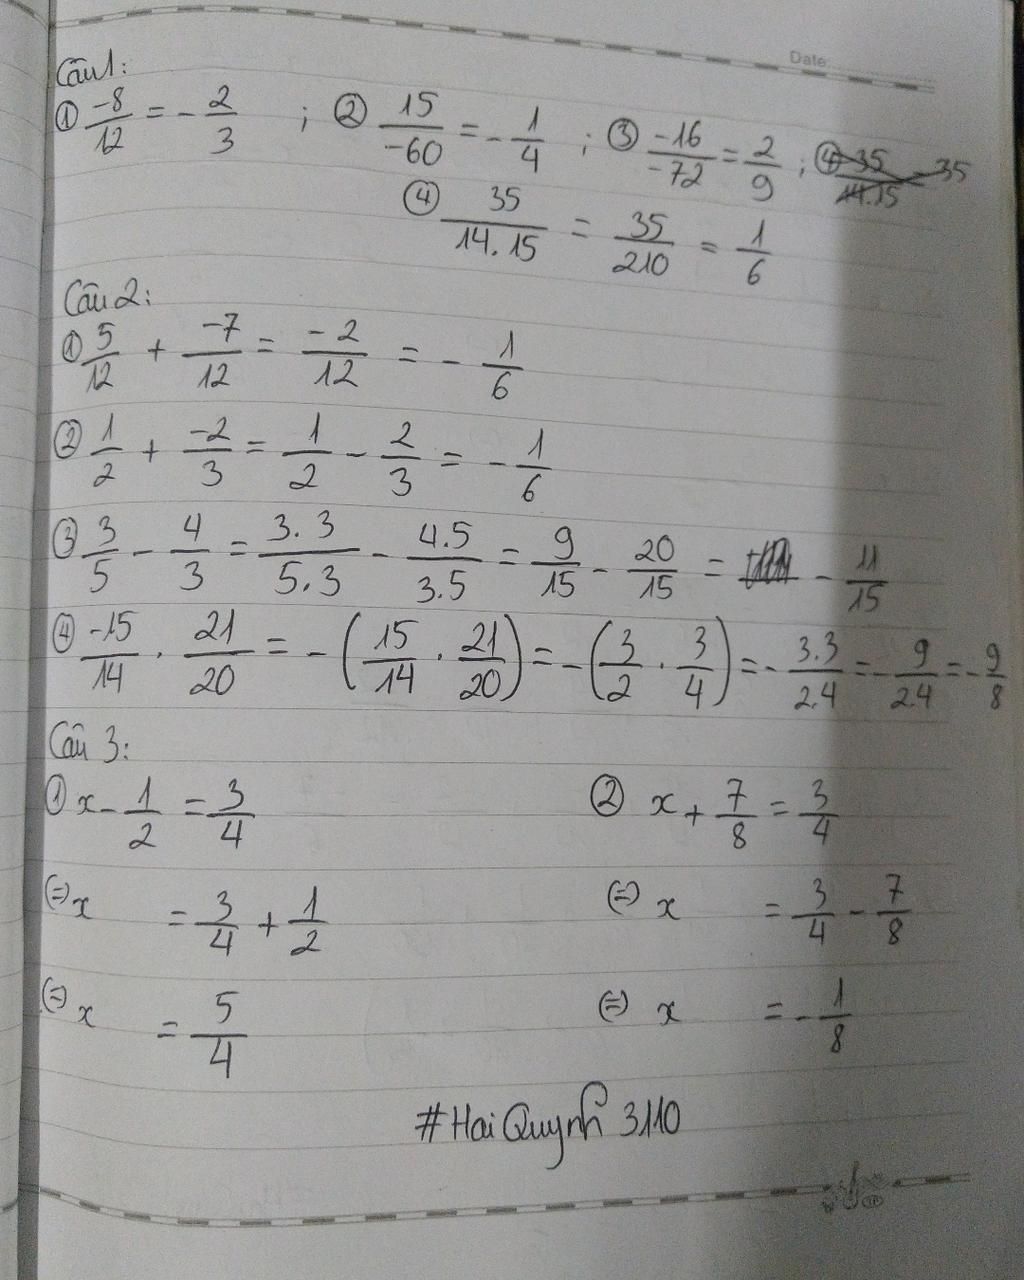 Date
Câu 1:
① -8/12 = - 2/3 ; ② 15/-60 = - 1/4 ; ③ -16/-72 = 2/9 ; ④ 35/14.15 = 35
④ 35/14.15 = 35/210 = 1/6
Câu 2:
① 5/12 + -7/12 = -2/12 = - 1/6
② 1/2 + -2/3 = 1/2 - 2/3 = - 1/6
③ 3/5 - 4/3 = 3.3/5.3 - 4.5/3.5 = 9/15 - 20/15 = - 11/15
④ -15/14 . 21/20 = - (15/14 . 21/20) = - (3/2 . 3/4) = - 3.3/2.4 = - 9/2.4 = - 9/8
Câu 3:
① x - 1/2 = 3/4 ② x + 7/8 = 3/4
(=) x = 3/4 + 1/2 (=) x = 3/4 - 7/8
(=) x = 5/4 (=) x = - 1/8
#HaiQuynh 3110